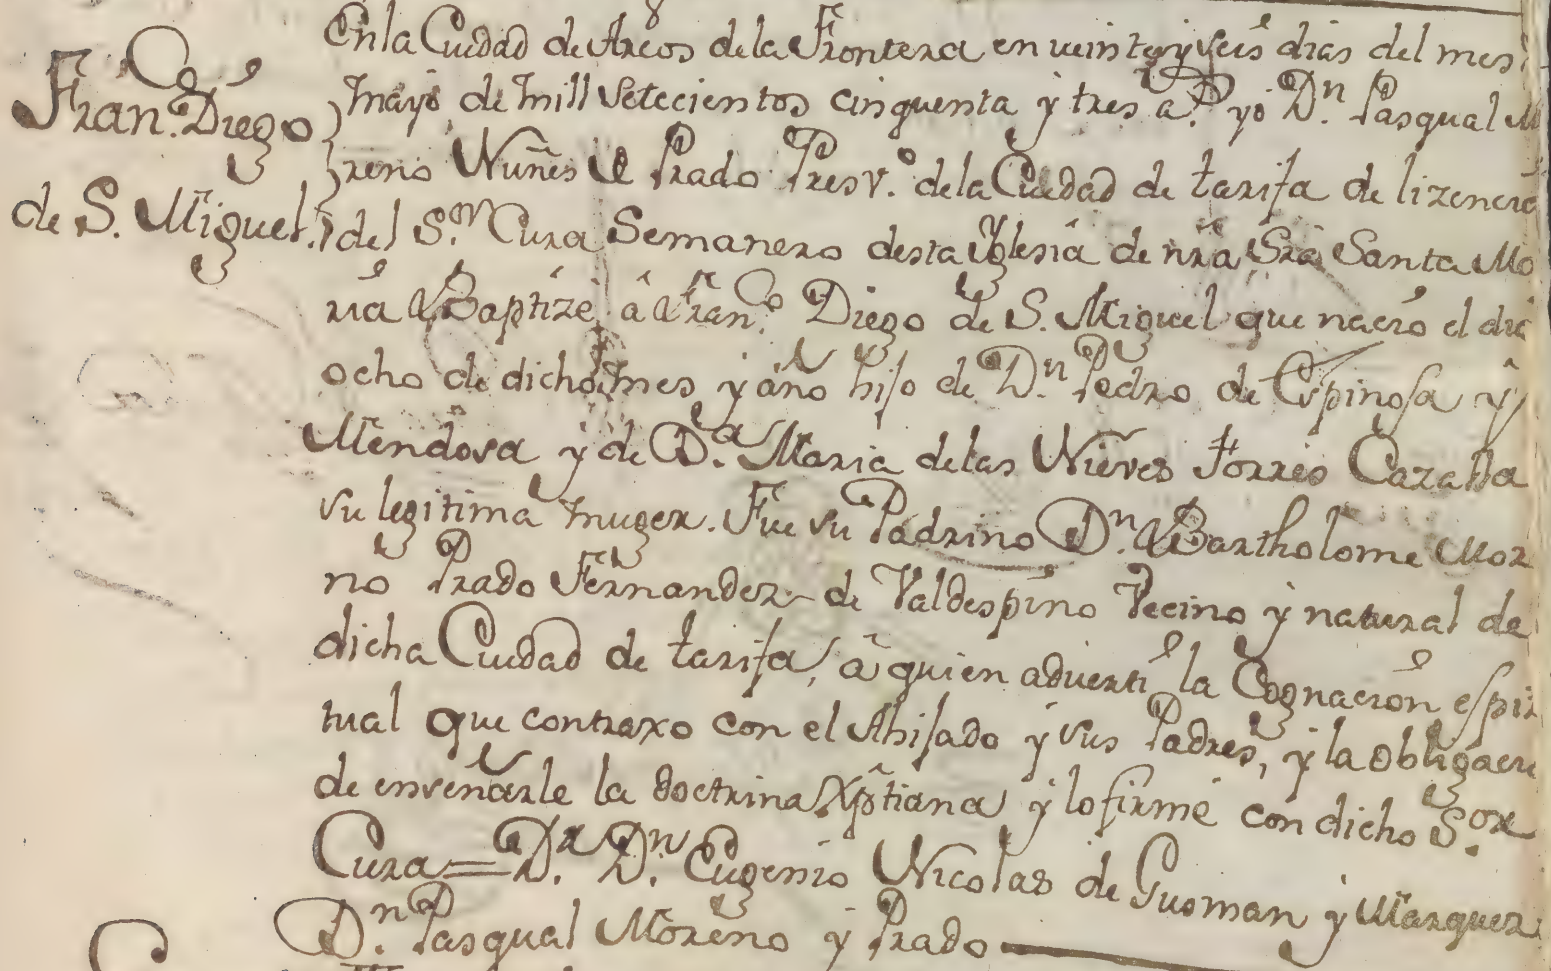 Fran.co Diego
de S. Miguel.
En la Ciudad de Arcos de la Frontera en veinte y seis dias del mes
Mayo de mill setecientos cinquenta y tres a.s yo D.n Pasqual M
reno Nuñes de Prado Presv.o de la Ciudad de tarifa de lizencia
del S.or Cura Semanero desta Yglesia de nra Sra Santa Ma
ria Baptizé â Fran.co Diego de S. Miguel que nacio el dia
ocho de dicho mes y año hijo de D.n Pedro de Espinosa y
Mendosa y de D.a Maria de las Nieves Torres Cazalla
su legitima muger. Fue su Padrino D.n Bartholome Mor
no Prado Fernandez de Valdespino Vecino y natural de
dicha Ciudad de tarifa, â quien adverti la Cognacion espiri
tual que contraxo con el Ahijado y sus Padres, y la obligacio
de enseñarle la doctrina Xptiana y lo firmé con dicho S.or
Cura = D.r D.n Eugenio Nicolas de Gusman y Marquez
D.n Pasqual Moreno y Prado